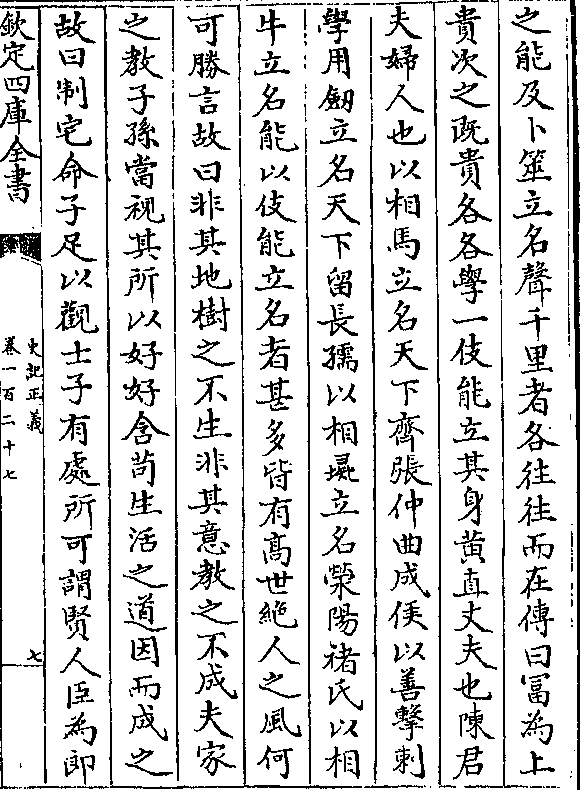 之能及卜筮立名聲千里者各往往而在傳曰冨為上
貴次之既貴各各學一伎能立其身黄直丈夫也陳君
夫婦人也以相馬立名天下齊張仲曲成侯以善擊刺
學用劒立名天下留長孺以相彘立名滎陽禇氏以相
牛立名能以伎能立名者甚多皆有髙世絶人之風何
可勝言故曰非其地樹之不生非其意教之不成夫家
之教子孫當視其所以好好含茍生活之道因而成之
故曰制宅命子足以觀士子有處所可謂賢人臣為郎
欽定四庫全書
史記正義
卷一百二十七
七